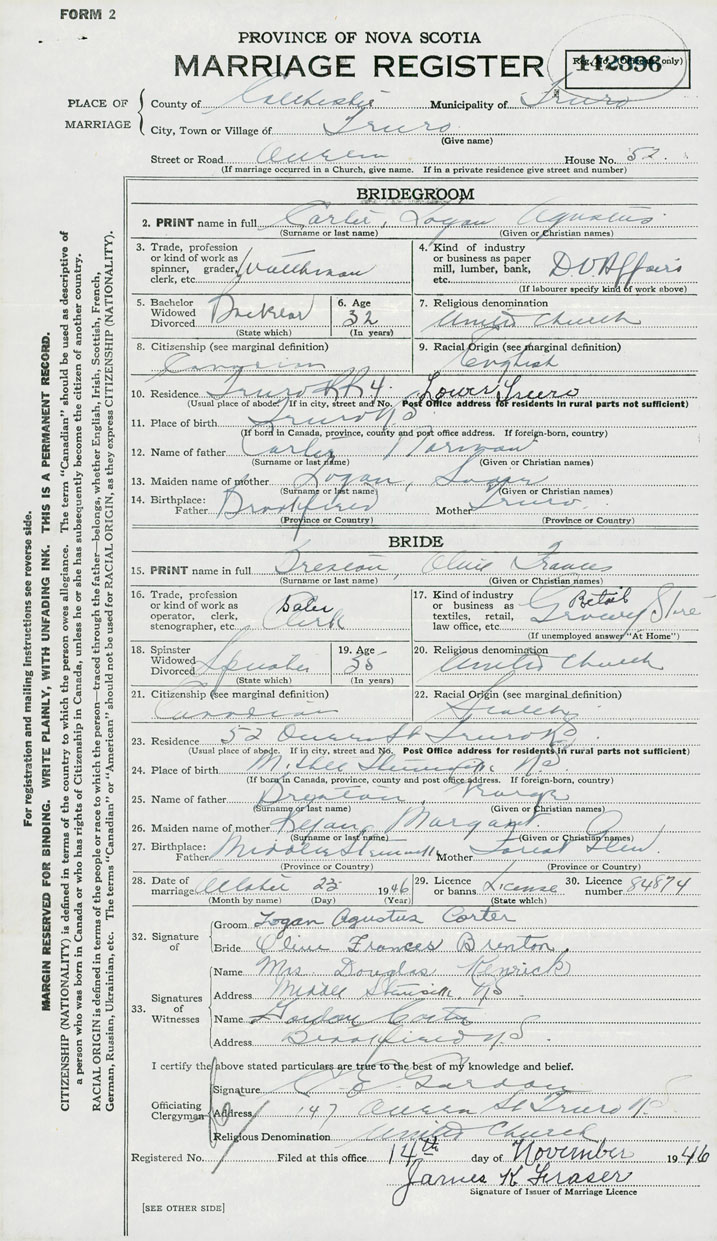 FORM 2
PROVINCE OF NOVA SCOTIA
MARRIAGE REGISTER
Reg. No. (Official use only)
PLACE OF MARRIAGE
County of Colchester Municipality of Truro
City, Town or Village of Truro
(Give name)
Street or Road Queen House No. 52
(If marriage occurred in a Church, give name. If in a private residence give street and number)
BRIDEGROOM
2. PRINT name in full Carter, Logan Agustus
(Surname or last name) (Given or Christian names)
3. Trade, profession or kind of work as spinner, grader, clerk, etc. Watchman
4. Kind of industry or business as paper mill, lumber, bank, etc. D V Affairs
(If labourer specify kind of work above)
5. Bachelor Widowed Divorced Bachelor
(State which)
6. Age 32
(In years)
7. Religious denomination United Church
8. Citizenship (see marginal definition) Canadian
9. Racial Origin (see marginal definition) English
10. Residence Truro RR4 Lower Truro
(Usual place of abode. If in city, street and No. Post Office address for residents in rural parts not sufficient)
11. Place of birth Truro N S
(If born in Canada, province, county and post office address. If foreign-born, country)
12. Name of father Carter Norman
(Surname or last name) (Given or Christian names)
13. Maiden name of mother Logan,
(Surname or last name) (Given or Christian names)
14. Birthplace: Father Brookfield Mother Truro
(Province or Country) (Province or Country)
BRIDE
15. PRINT name in full Olive Frances
(Surname or last name) (Given or Christian names)
16. Trade, profession or kind of work as operator, clerk, stenographer, etc. Sales Clerk
17. Kind of industry or business as textiles, retail, law office, etc. Retail Grocery Store
(If unemployed answer "At Home")
18. Spinster Widowed Divorced Spinster
(State which)
19. Age
(In years)
20. Religious denomination United Church
21. Citizenship (see marginal definition) Canadian
22. Racial Origin (see marginal definition) Scotch
23. Residence 52 Queen St Truro N S
(Usual place of abode. If in city, street and No. Post Office address for residents in rural parts not sufficient)
24. Place of birth N S
(If born in Canada, province, county and post office address. If foreign-born, country)
25. Name of father Brenton,
(Surname or last name) (Given or Christian names)
26. Maiden name of mother Ryan, Margaret
(Surname or last name) (Given or Christian names)
27. Birthplace: Father Middle Stewiacke Mother Forest Glen
(Province or Country) (Province or Country)
28. Date of marriage October 1946
(Month by name) (Day) (Year)
29. Licence or banns License
(State which)
30. Licence number 84874
32. Signature of
Groom Logan Agustus Carter
Bride Olive Frances Brenton
33. Signatures of Witnesses
Name Mrs. Douglas Kenrick
Address Middle Stewiacke N S
Name Gordon Carter
Address Brookfield N S
I certify the above stated particulars are true to the best of my knowledge and belief.
Officiating Clergyman
Signature Gordon
Address 147 Queen St Truro N S
Religious Denomination United Church
Registered No. Filed at this office 14th day of November 1946
James K Fraser
Signature of Issuer of Marriage Licence
[SEE OTHER SIDE]
For registration and mailing instructions see reverse side.
MARGIN RESERVED FOR BINDING. WRITE PLAINLY, WITH UNFADING INK. THIS IS A PERMANENT RECORD.
CITIZENSHIP (NATIONALITY) is defined in terms of the country to which the person owes allegiance. The term "Canadian" should be used as descriptive of
a person who was born in Canada or who has rights of Citizenship in Canada, unless he or she has subsequently become the citizen of another country.
RACIAL ORIGIN is defined in terms of the people or race to which the person—traced through the father—belongs, whether English, Irish, Scottish, French,
German, Russian, Ukrainian, etc. The terms "Canadian" or "American" should not be used for RACIAL ORIGIN, as they express CITIZENSHIP (NATIONALITY).